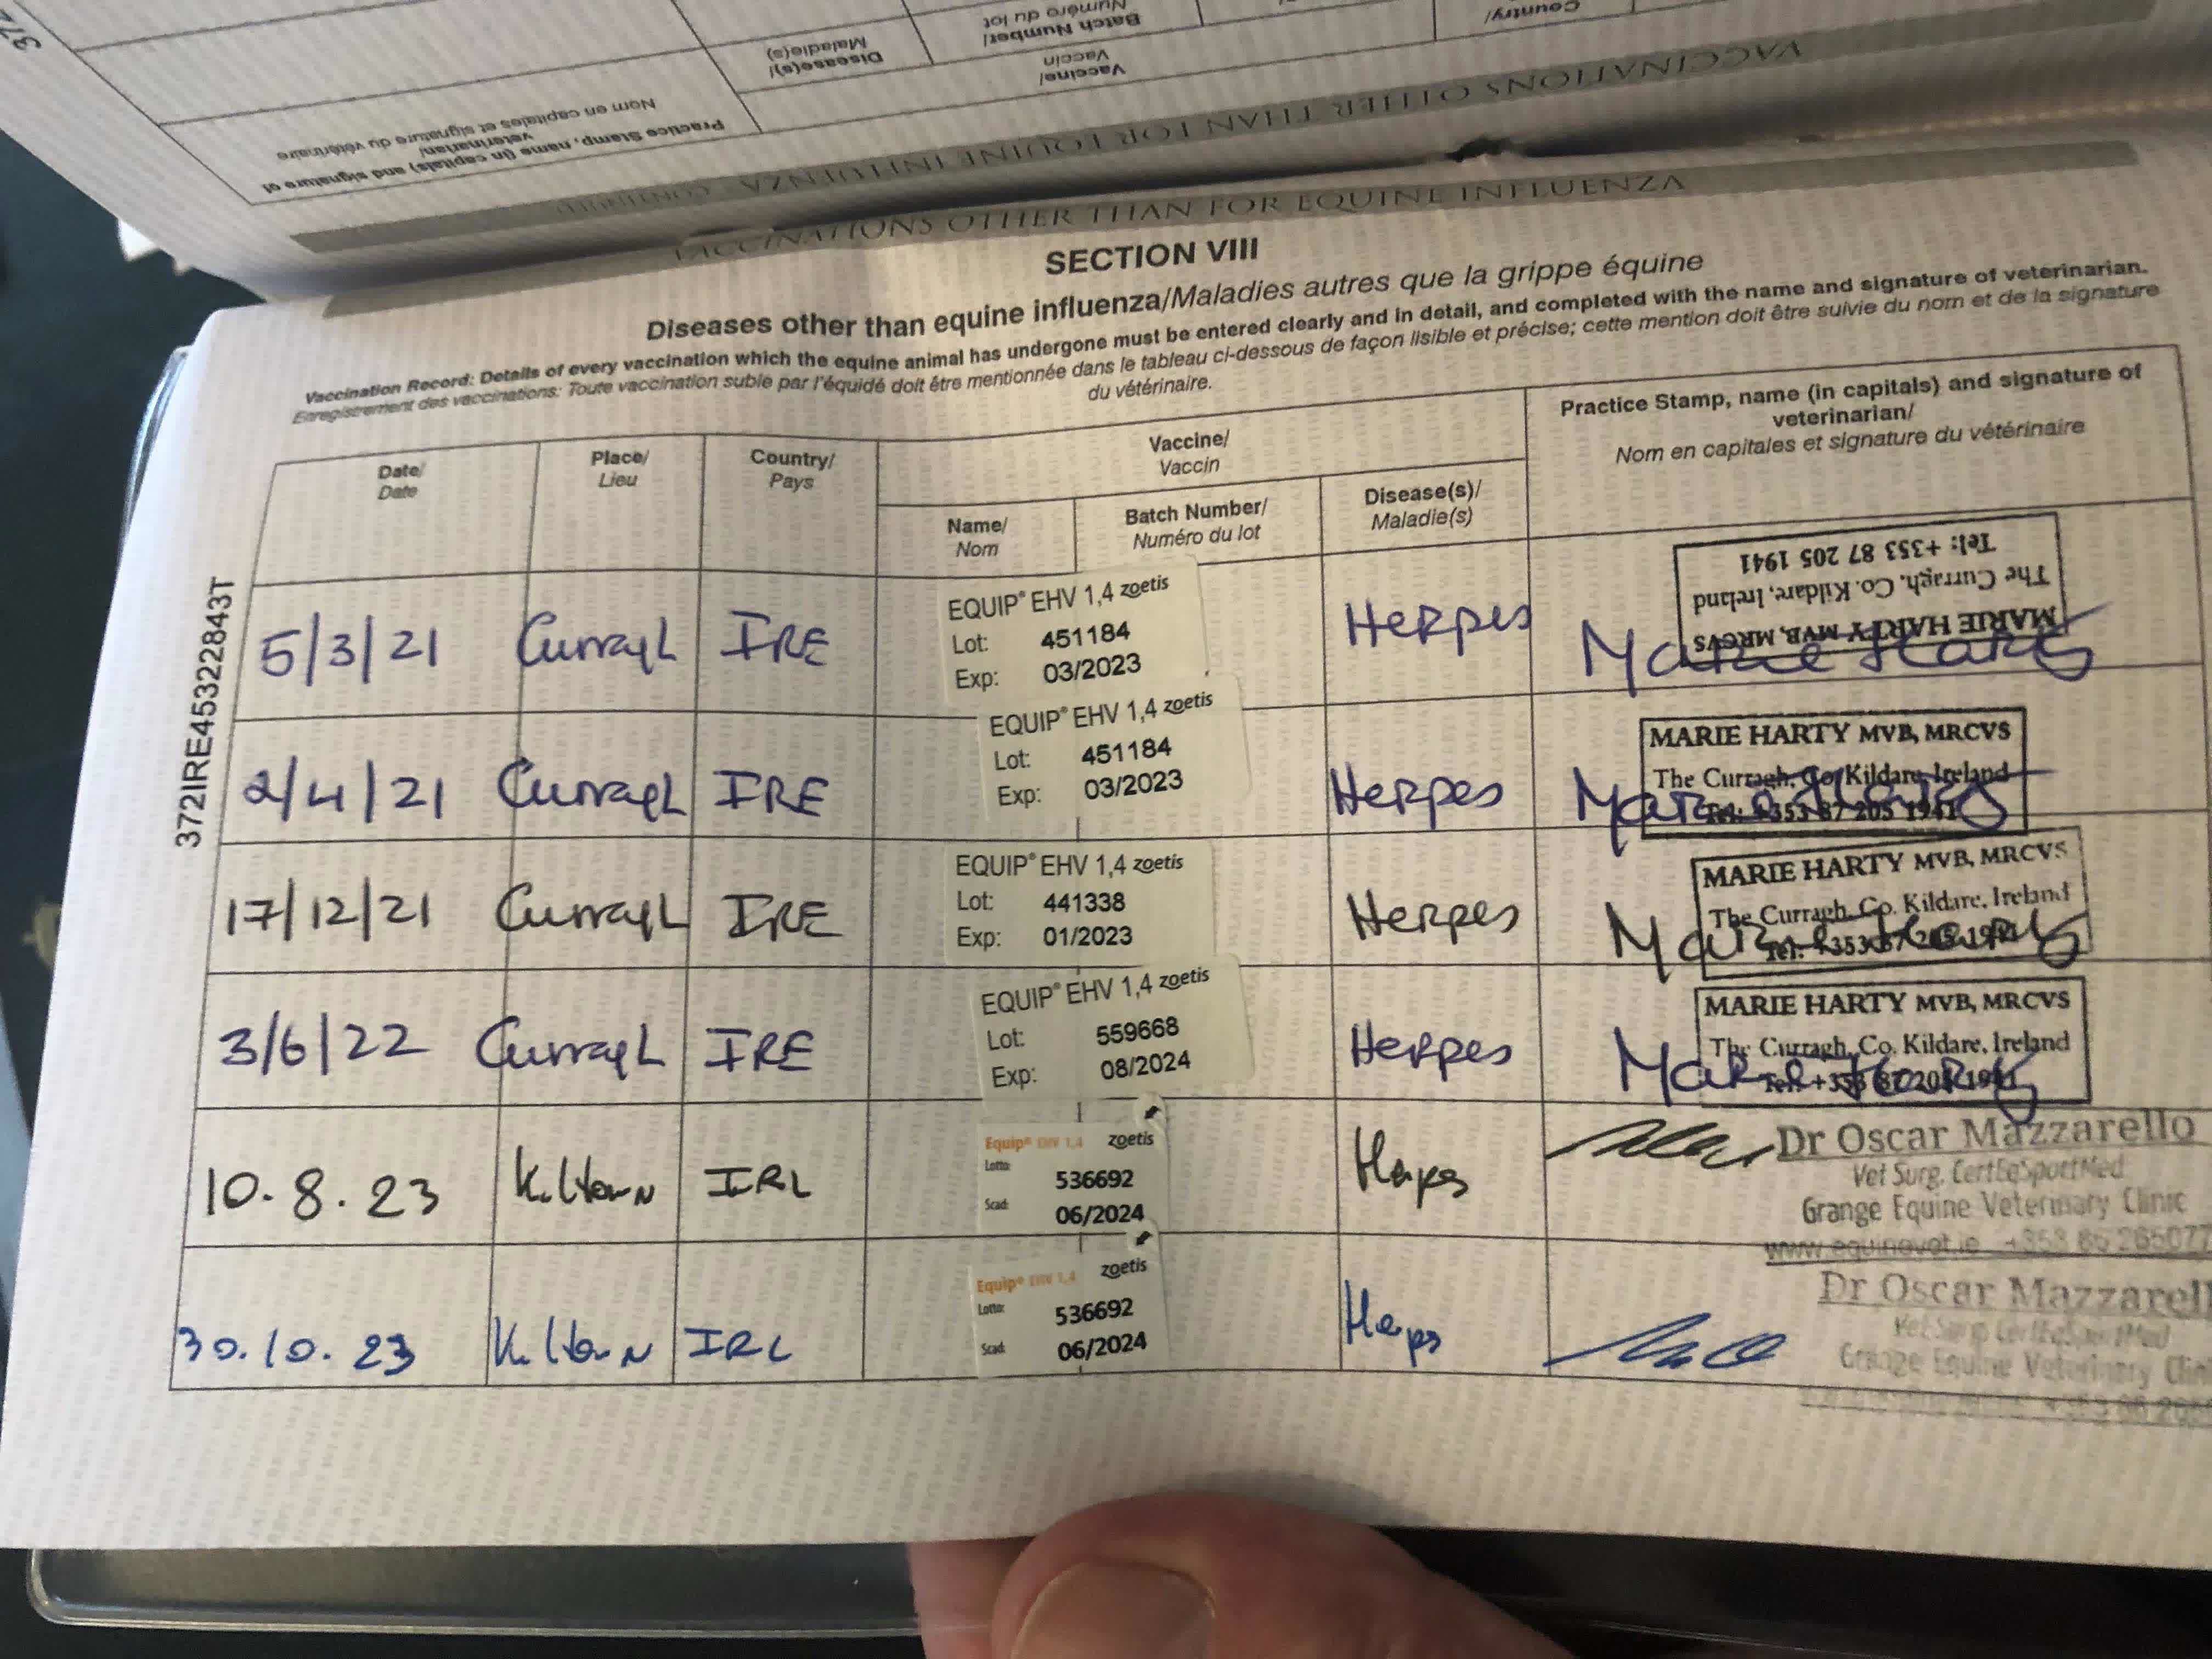 Country/
Batch Number/
Numéro du lot
Vaccine/
Vaccin
Disease(s)/
Maladie(s)
Practice Stamp, name (in capitals) and signature of
veterinarian/
Nom en capitales et signature du vétérinaire
VACCINATIONS OTHER THAN FOR EQUINE INFLUENZA - CONTINUED
VACCINATIONS OTHER THAN FOR EQUINE INFLUENZA
SECTION VIII
Diseases other than equine influenza/Maladies autres que la grippe équine
Vaccination Record: Details of every vaccination which the equine animal has undergone must be entered clearly and in detail, and completed with the name and signature of veterinarian.
Enregistrement des vaccinations: Toute vaccination subie par l'équidé doit être mentionnée dans le tableau ci-dessous de façon lisible et précise; cette mention doit être suivie du nom et de la signature
du vétérinaire.
Date/
Date
Place/
Lieu
Country/
Pays
Vaccine/
Vaccin
Name/
Nom
Batch Number/
Numéro du lot
Disease(s)/
Maladie(s)
Practice Stamp, name (in capitals) and signature of
veterinarian/
Nom en capitales et signature du vétérinaire
372IRE45322843T
5/3/21 Curragh IRE
EQUIP® EHV 1,4 zoetis
Lot: 451184
Exp: 03/2023
Herpes
MARIE HARTY MVB, MRCVS
The Curragh, Co. Kildare, Ireland
Tel: +353 87 205 1941
Marie Harty
2/4/21 Curragh IRE
EQUIP® EHV 1,4 zoetis
Lot: 451184
Exp: 03/2023
Herpes
MARIE HARTY MVB, MRCVS
The Curragh, Co. Kildare, Ireland
Tel: +353 87 205 1941
Marie Harty
17/12/21 Curragh IRE
EQUIP® EHV 1,4 zoetis
Lot: 441338
Exp: 01/2023
Herpes
MARIE HARTY MVB, MRCVS
The Curragh, Co. Kildare, Ireland
Tel: +353 87 205 1941
Marie Harty
3/6/22 Curragh IRE
EQUIP® EHV 1,4 zoetis
Lot: 559668
Exp: 08/2024
Herpes
MARIE HARTY MVB, MRCVS
The Curragh, Co. Kildare, Ireland
Tel: +353 87 205 1941
Marie Harty
10.8.23 Kiltown IRL
Equip® EHV 1,4 zoetis
Lotto: 536692
Scad: 06/2024
Herpes
Dr Oscar Mazzarello
Vet Surg. CertEqSportMed
Grange Equine Veterinary Clinic
www.equinevet.ie +353 86 265077
30.10.23 Kiltown IRL
Equip® EHV 1,4 zoetis
Lotto: 536692
Scad: 06/2024
Herps
Dr Oscar Mazzarell
Vet Surg CertEqSportMed
Grange Equine Veterinary Clin